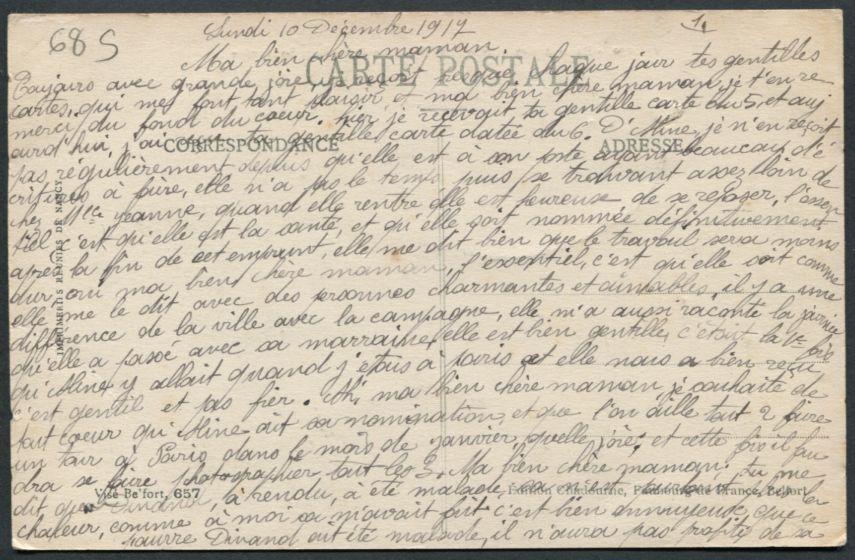 68 S
Lundi 10 Décembre 1917
1.
Ma bien chère maman
CARTE POSTALE
Toujours avec grande joie, je reçois chaque jour tes gentilles
cartes, qui me font tant plaisir, et ma bien chère maman, je t'en re
merci du fond du cœur. hier je recevait ta gentille carte du 5, et auj
CORRESPONDANCE
ADRESSE
ourd'hui, j'ai ta gentille carte datée du 6. D'Aline, je n'en reçoit
pas régulièrement depuis qu'elle est à son poste ayant beaucoup d'é
critures à faire, elle n'a pas le temps puis se trouvant assez loin de
chez Jeanne, quand elle rentre elle est heureuse de se reposer, l'essen
tiel c'est qu'elle est la santé, et qu'elle soit nommée définitivement
après la fin de cet emprunt, elle me dit bien que le travail sera moins
dur, oui ma bien chère maman, l'essentiel, c'est qu'elle soit comme
elle me le dit avec des personnes charmantes et aimables, il y a une
différence de la ville avec la campagne, elle m'a aussi raconté la journée
qu'elle a passé avec sa marraine, elle est bien gentille, c'était la 1e fois
qu'Aline y allait quand j'étais à Paris et elle nous a bien reçu
c'est gentil et pas fier. Ah, ma bien chère maman je souhaite de
tout cœur qu'Aline ait sa nomination, et que l'on aille tout 2 faire
un tour à Paris dans le mois de janvier, quelle joie, et cette fois il fau
dra se faire photographier tout les 3. Ma bien chère maman. tu me
dit que Dinand, à rendu, à été malade, ça n'est
chaleur, comme à moi ça m'avait fait c'est bien ennuyeux, que ce
pauvre Dinand ait été malade, il n'aura pas profité de sa
Visé Belfort, 657
Édition Chadourne, Faubourg de France, Belfort
IMPRIMERIES RÉUNIES DE NANCY